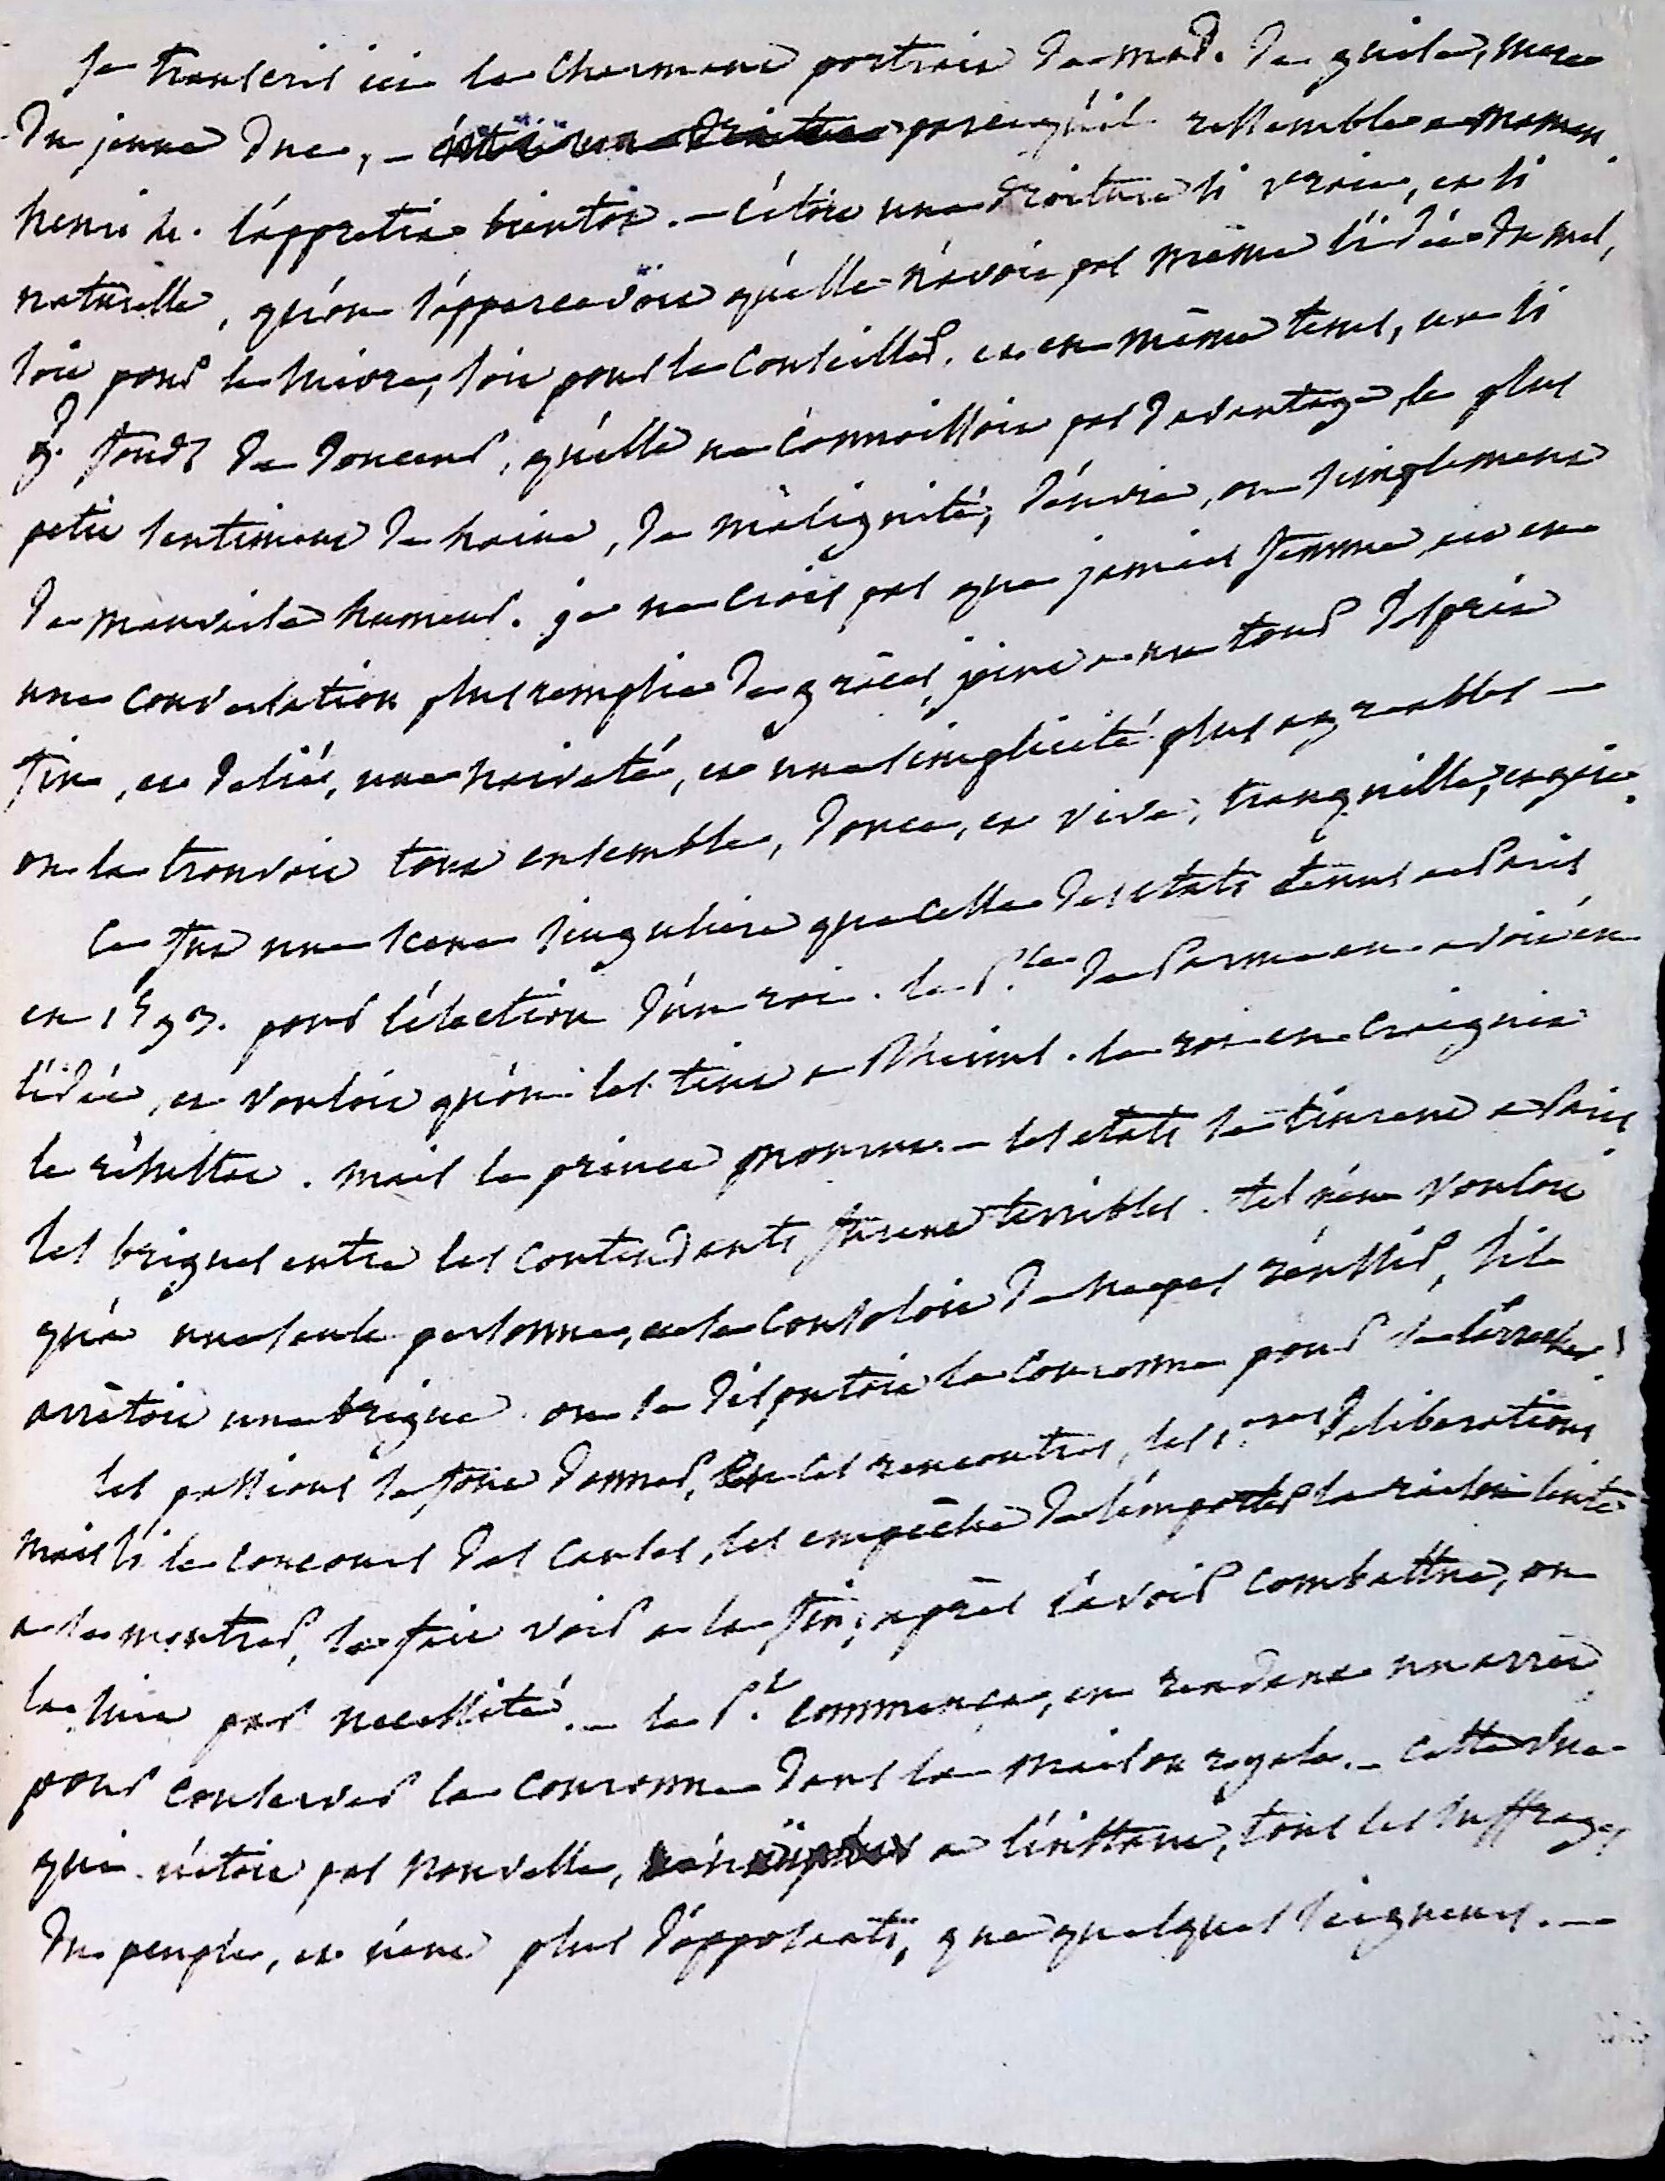 Je transcris ici le charmant portrait de mad. de guise, mere
du jeune duc, – parcequ'il ressemble a maman
henri 4. l'apprecia bientot. – c'étoit une droiture si vraie, et si
naturelle, qu'on s'appercevoit qu'elle n'avoit pas même l'idée du mal,
soit pour le suivre, soit pour le conseiller. et en même tems, un si
g. fonds de douceur, qu'elle ne connoissoit pas davantage, le plus
petit sentiment de haine, de malignité, d'envie, ou simplement
de mauvaise humeur. je ne crois pas que jamais femme, ait eu
une conversation plus remplie de graces, joint a un tour d'esprit
fin, et delié, une naiveté, et une simplicité plus agreables –
on la trouvoit tout ensemble, douce, et vive, tranquille, et gaie.
Ce fut une scene singuliere que celle des etats tenus a Paris
en 1593. pour l'élection d'un roi. le P.ce de Parme en avoit eu
l'idée, et vouloit qu'on les tint a Rheims. le roi en craignit
le résultat. mais le prince mourut. – les etats se tinrent a Paris
les brigues entre les contendants furent terribles. tel n'en vouloit
qu'a une seule personne, et se consoloit de ne pas réussir, s'il
arrêtoit une brigue. on se disputoit la couronne pour se l'arracher
les passions se font donner, les rencontres, les 1.eres deliberations
mais si le concours des causes, les empêche de l'emporter la raison lente
a se montrer, se fait voir a la fin; après l'avoir combattue, on
la suit par necessité. – le P.t commença, en rendant un arrêt
pour conserver la couronne dans la maison royale. – cette vue
qui n'étoit pas nouvelle, a l'instant, tous les suffrages
du peuple, et n'eut plus d'opposants, que quelques seigneurs. –